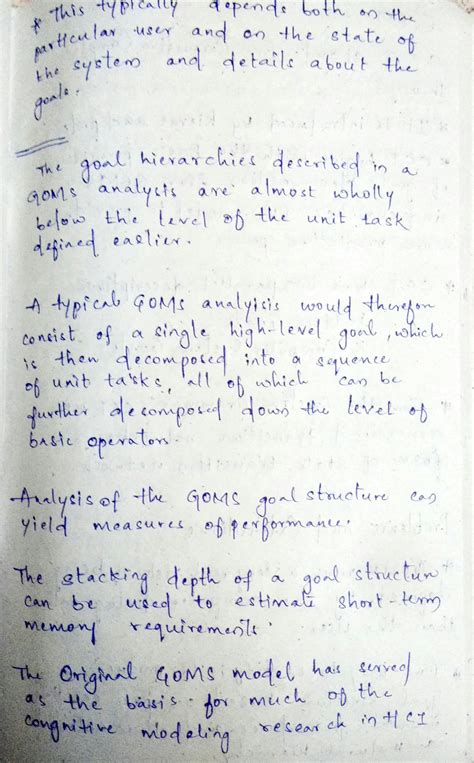 * This typically depends both on the
particular user and on the state of
the system and details about the
goals.
The goal hierarchies described in a
GOMS analysis are almost wholly
below the level of the unit task
defined earlier.
A typical GOMS analyisis would therefon
consist of a single high-level goal, which
is then decomposed into a sequence
of unit tasks, all of which can be
further decomposed down the level of
basic operators
Analysis of the GOMS goal structure can
yield measures of performance.
The stacking depth of a goal structun
can be used to estimate short-term
memory requirements.
The Original GOMS model has served
as the basis for much of the
congnitive modeling research in HCI